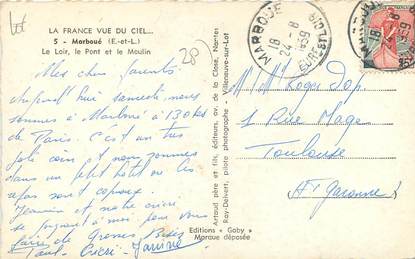 LA FRANCE VUE DU CIEL...
5 - Marboué (E.-et-L.)
Le Loir, le Pont et le Moulin
28
Mes chers parents
Aujourd'hui samedi, nous
sommes à Marboué à 130 km
de Paris. C'est un très
joli coin et nous sommes
dans un petit hôtel où les
repas sont copieux.
et notre
se joignent à moi pour vous
faire de Grosses Bises
Paul - Janine
Artaud père et fils, éditeurs, av. de la Close, Nantes
Ray-Delvert, pilote photographe - Villeneuve-sur-Lot
Editions "Gaby"
Marque déposée
MARBOUÉ
18 H
24 - 8
1959
EURE-ET-LOIR
Mr Mme Roger
1 Rue Mage
Toulouse
Hte Garonne